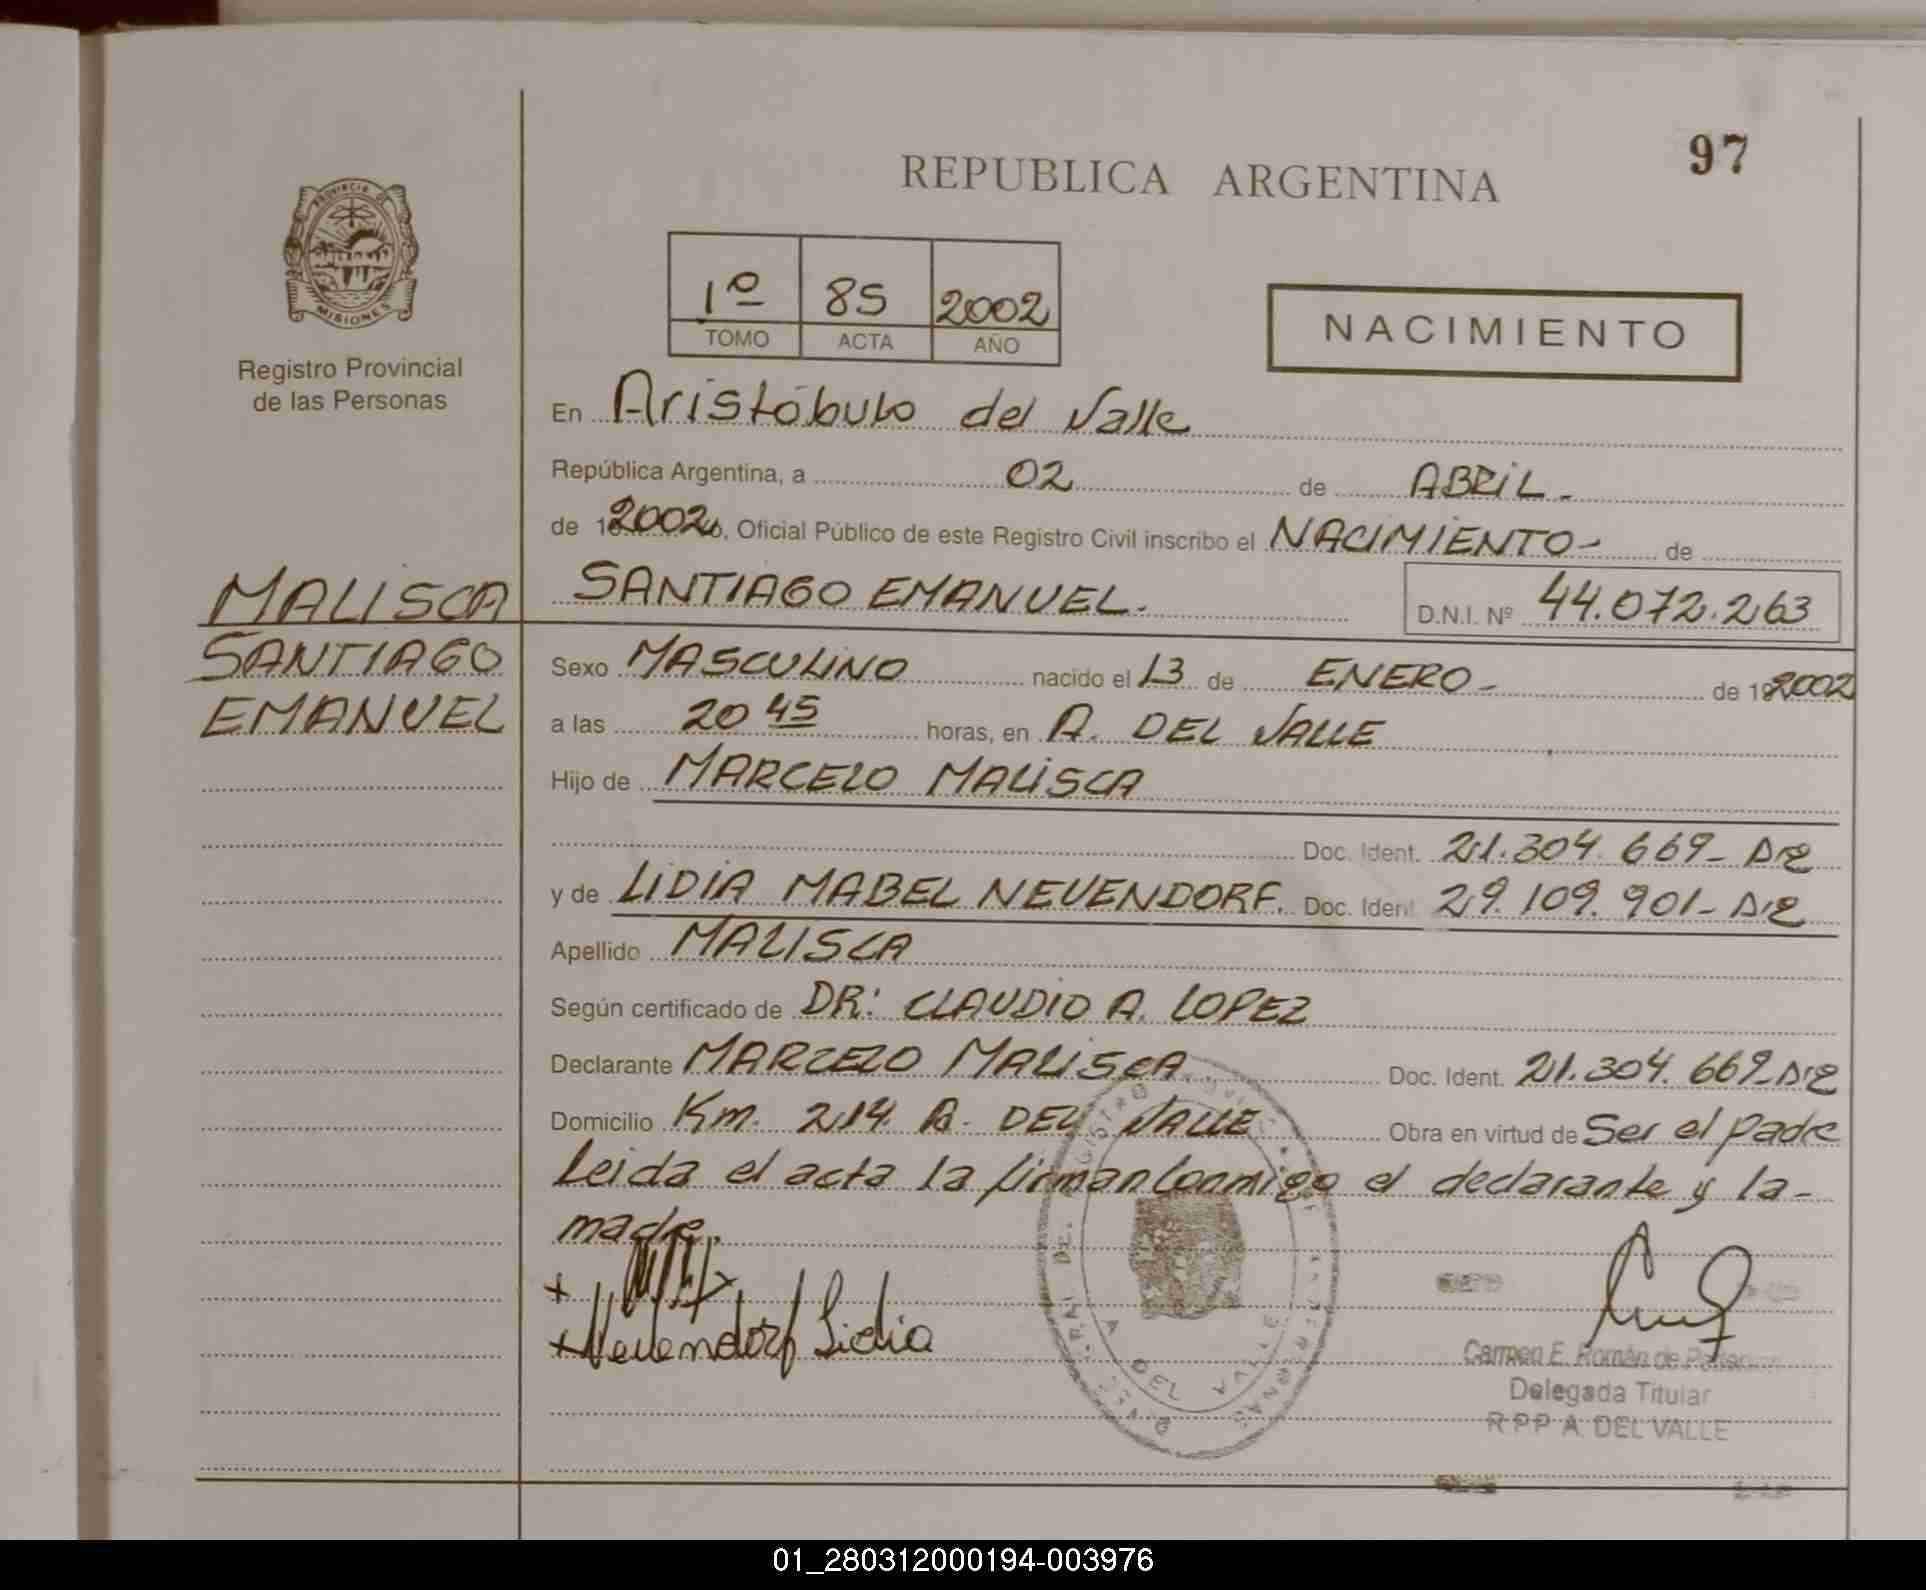 97
REPUBLICA ARGENTINA
PROVINCIA DE
MISIONES
Registro Provincial
de las Personas
1º 85 2002
TOMO ACTA AÑO
NACIMIENTO
En Aristóbulo del Valle
República Argentina, a 02 de ABRIL.
de 2002, Oficial Público de este Registro Civil inscribo el NACIMIENTO- de
MALISCA SANTIAGO EMANUEL. D.N.I. Nº 44.072.263
SANTIAGO
EMANUEL
Sexo MASCULINO nacido el 13 de ENERO- de 2002
a las 20 45 horas, en A. DEL VALLE
Hijo de MARCELO MALISCA
Doc. Ident. 21.304.669-
y de LIDIA MABEL NEUENDORF. Doc. Ident. 29.109.901-
Apellido MALISCA
Según certificado de DR: CLAUDIO A. LOPEZ
Declarante MARCELO MALISCA Doc. Ident. 21.304.669-
Domicilio Km. 214. A. DEL VALLE Obra en virtud de Ser el padre
Leida el acta la firman Conmigo el declarante y la-
madre.
+
+ Neuendorf Lidia
A DEL VALLE
Carmen E. Román de
Delegada Titular
R P P A DEL VALLE
01_280312000194-003976